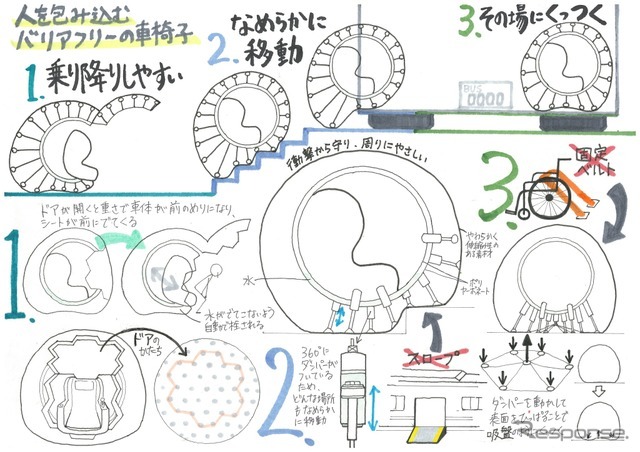 人を包み込む
バリアフリーの車椅子
1. 乗り降りしやすい
2. なめらかに
移動
3. その場にくっつく
BUS
0000
衝撃から守り、周りにやさしい
ドアが開くと重さで車体が前のめりになり、
シートが前にでてくる
1.
水がでてこないよう
自動で栓される
水
やわらかく
伸縮性の
ある素材
ポリ
カーボネート
3.
固定
ベルト
ドアの
かたち
2.
360°に
ダンパーが
ついている
ため、
どんな場所
もなめらか
に移動
スロープ
ダンパーを動かして
表面をひっぱることで
吸盤の
Response.